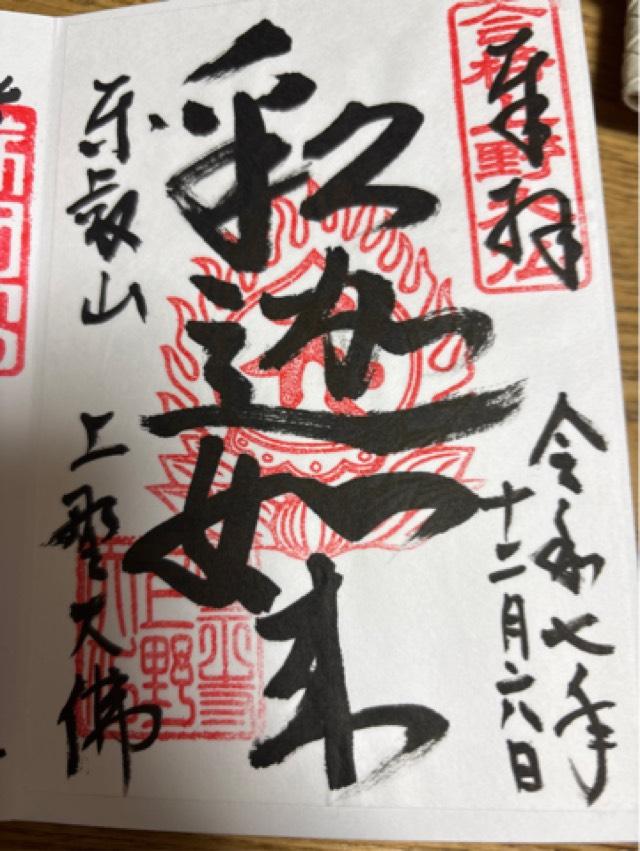 奉拝
合格上野大仏
令和七年
十二月六日
釈迦如来
東叡山
上野大佛